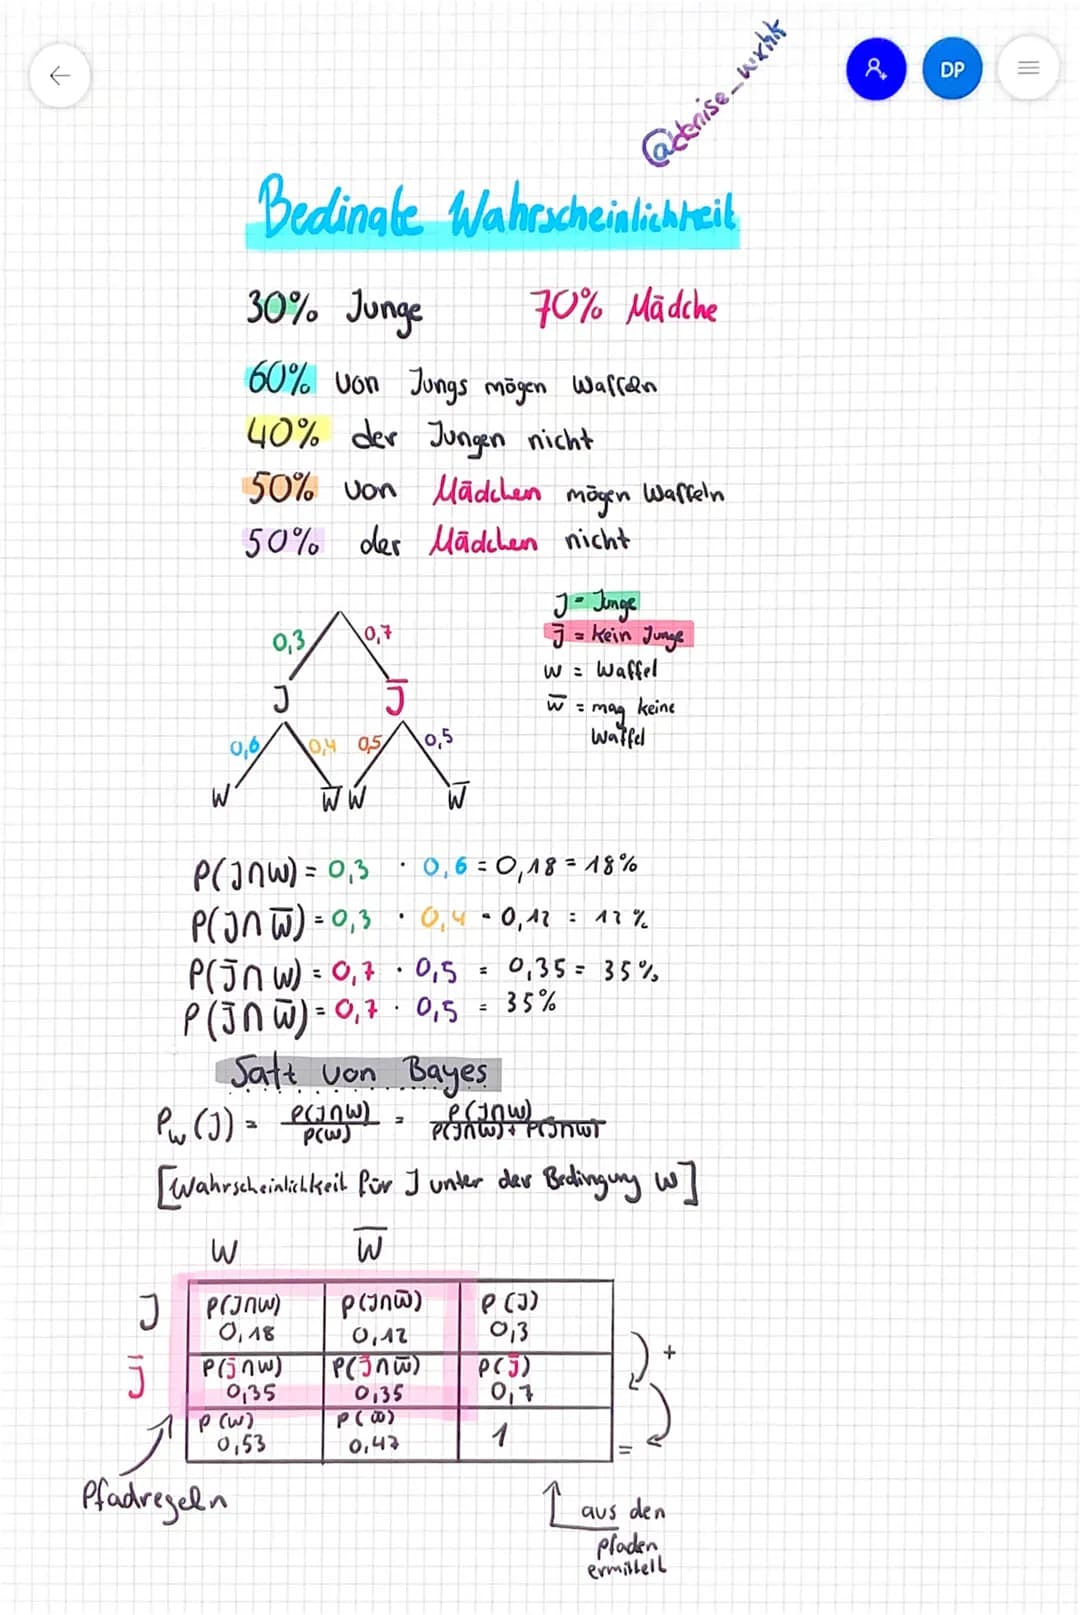 @denise_wxhlt
DP
Bedingte Wahrscheinlichkeit
30% Junge 70% Mädche
60% von Jungs mögen Waffeln
40% der Jungen nicht
50% von Mädchen mögen Waffeln
50% der Mädchen nicht
J = Junge
J̅ = kein Junge
W = Waffel
W̅ = mag keine
Waffel
0,3 0,7
J J̅
0,6 0,4 0,5 0,5
W W̅ W W̅
P(J∩W) = 0,3 · 0,6 = 0,18 = 18%
P(J∩W̅) = 0,3 · 0,4 = 0,12 = 12%
P(J̅∩W) = 0,7 · 0,5 = 0,35 = 35%
P(J̅∩W̅) = 0,7 · 0,5 = 35%
Satz von Bayes
P_W(J) = P(J∩W) / P(W) = P(J∩W) / P(J∩W) + P(J̅∩W)
[Wahrscheinlichkeit für J unter der Bedingung W]
W W̅
J P(J∩W) P(J∩W̅) P(J)
0,18 0,12 0,3
J̅ P(J̅∩W) P(J̅∩W̅) P(J̅)
0,35 0,35 0,7
+
P(W) P(W̅)
0,53 0,47 1
=
Pfadregeln
aus den
Pfaden
ermittelt